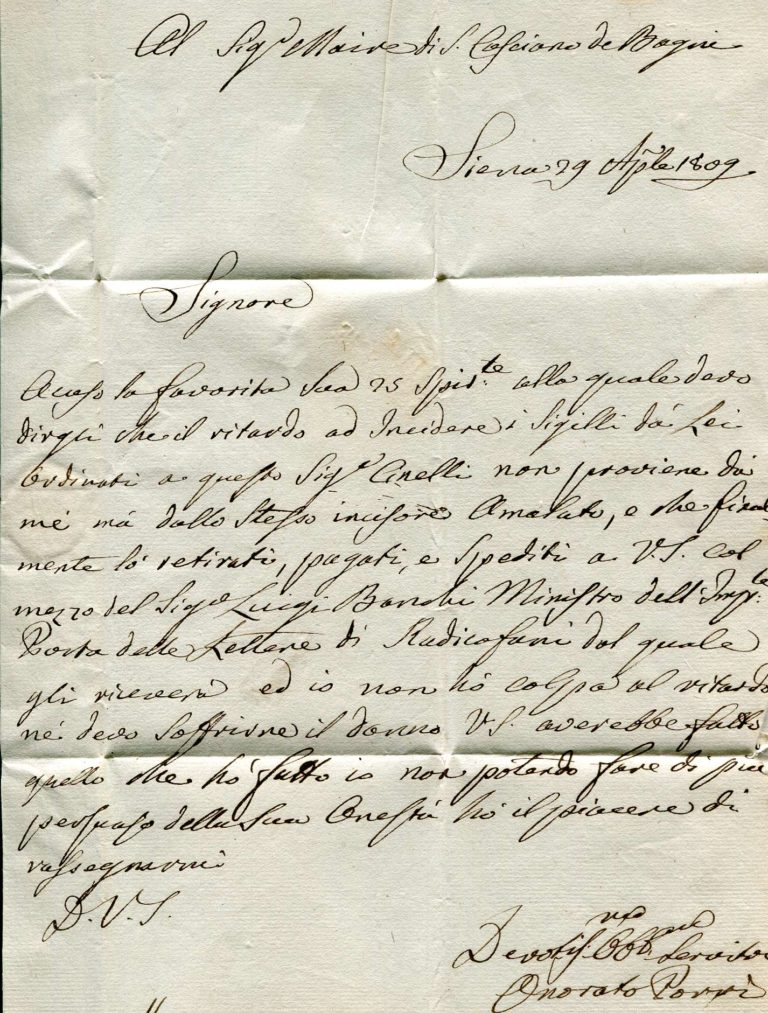 Al Sig.r Maire di S. Casciano de Bagni
Siena 29 Aple 1809.
Signore
Accuso la favorita sua 25 Spir.te alla quale devo
dirgli che il ritardo ad Incidere i Sigilli dà Lei
Ordinati a questo Sig.r Cinelli non proviene dà
mé mà dallo stesso incisore Amalato, e che final=
mente lò retirati, pagati, e Spediti a V.S. col
mezzo del Sig.e Luigi Banchi Ministro dell'Imp.le
Posta delle Lettere di Radicofani dal quale
gli riceverà ed io non hò colpa al ritardo
né devo soffrirne il danno V.S. averebbe fatto
quello che hò fatto io non potendo fare di più
persuaso della sua Onestà hò il piacere di
rassegnarmi
D. V. S.
Devotis. Obb. Servitor
Onorato Porri